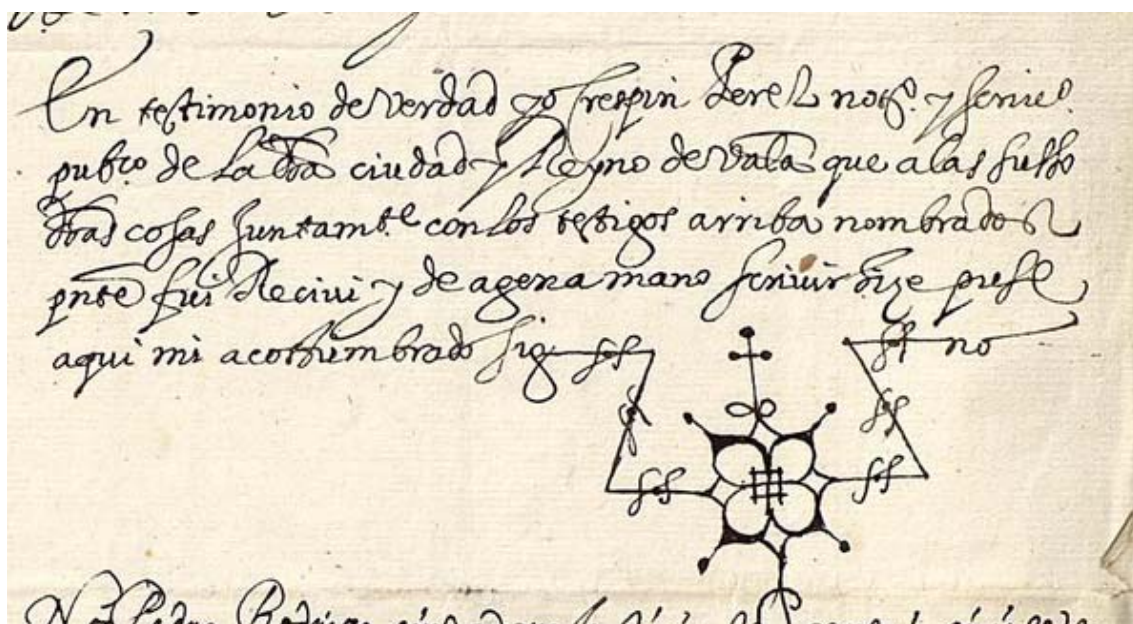 En testimonio de verdad yo Crespin Perez not.º y scriv.º
pub.co de la dha ciudad y Reyno de Val.a que a las suso
dhas cosas juntam.te con los testigos arriba nombrados
pnte fui Recivi y de agena mano scrivir hize puse
aqui mi acostumbrado sig no